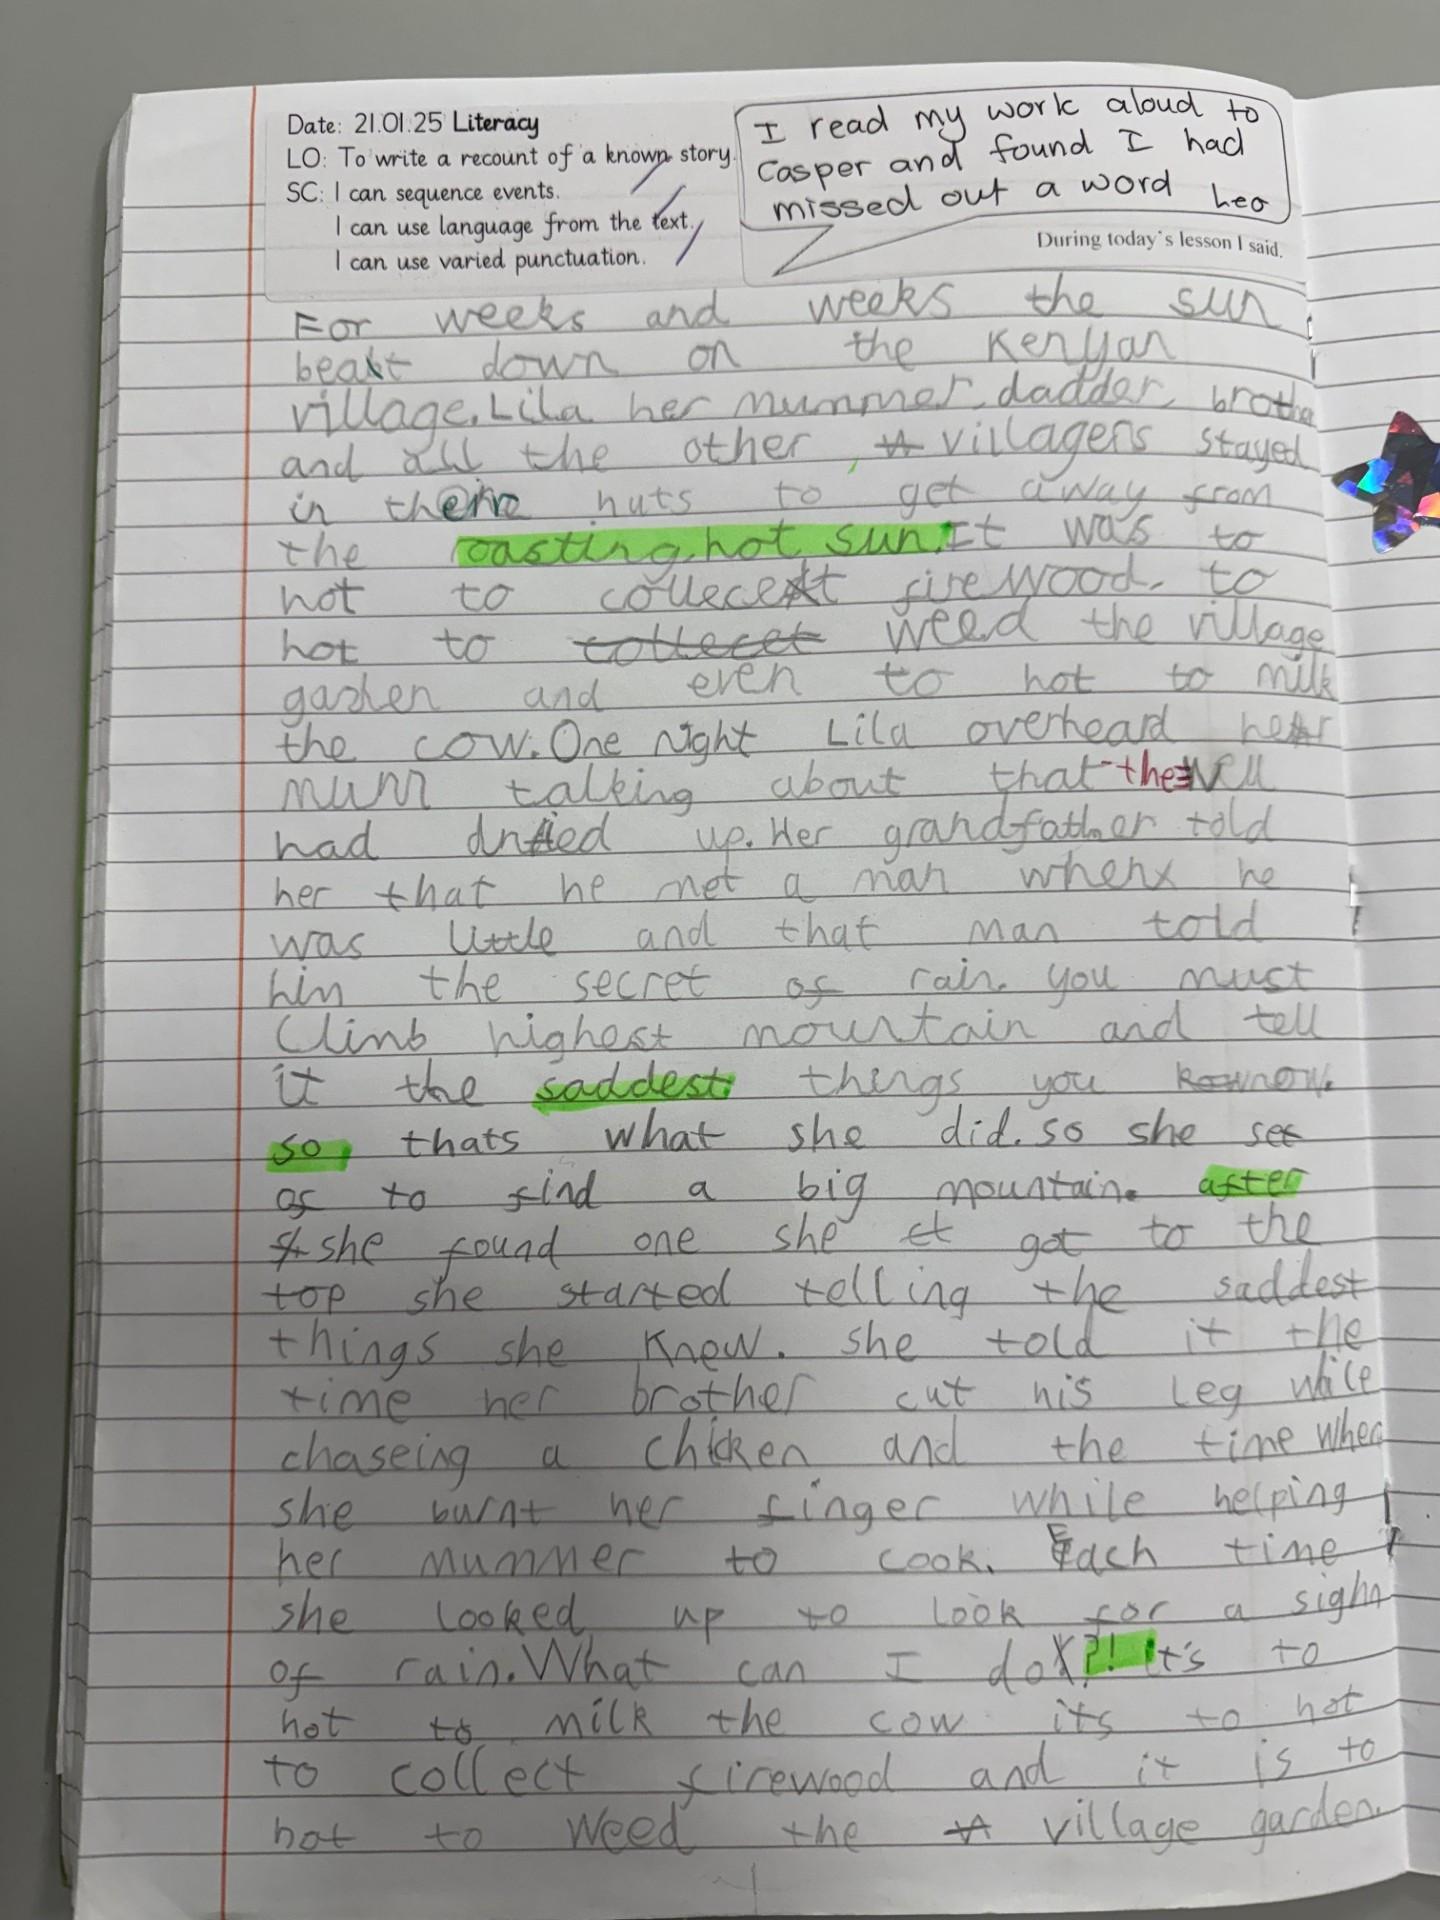 Date: 21.01.25 Literacy
LO: To write a recount of a known story.
SC: I can sequence events.
I can use language from the text.
I can use varied punctuation.
I read my work aloud to
Casper and found I had
missed out a word Leo
During today's lesson I said.
For weeks and weeks the sun
beat down on the Kenyan
village. Lila her mummer, dadder, brother
and all the other, villagers stayed
in their huts to get away from
the roasting, hot sun. It was to
hot to collect firewood. to
hot to collecet weed the village
garden and even to hot to milk
the cow. One Night Lila overheard her
mum talking about that the well
had dried up. Her grandfather told
her that he met a man when he
was little and that man told
him the secret of rain. you must
Climb highest mountain and tell
it the saddest things you know.
so thats what she did. so she set
of to find a big mountain. after
she found one she got to the
top she started telling the saddest
things she knew. she told it the
time her brother cut his leg while
chaseing a chicken and the time when
she burnt her finger while helping
her mummer to cook. Each time
she looked up to look for a sighn
of rain. What can I do?! It's to
hot to milk the cow its to hot
to collect firewood and it is to
hot to weed the village garden.